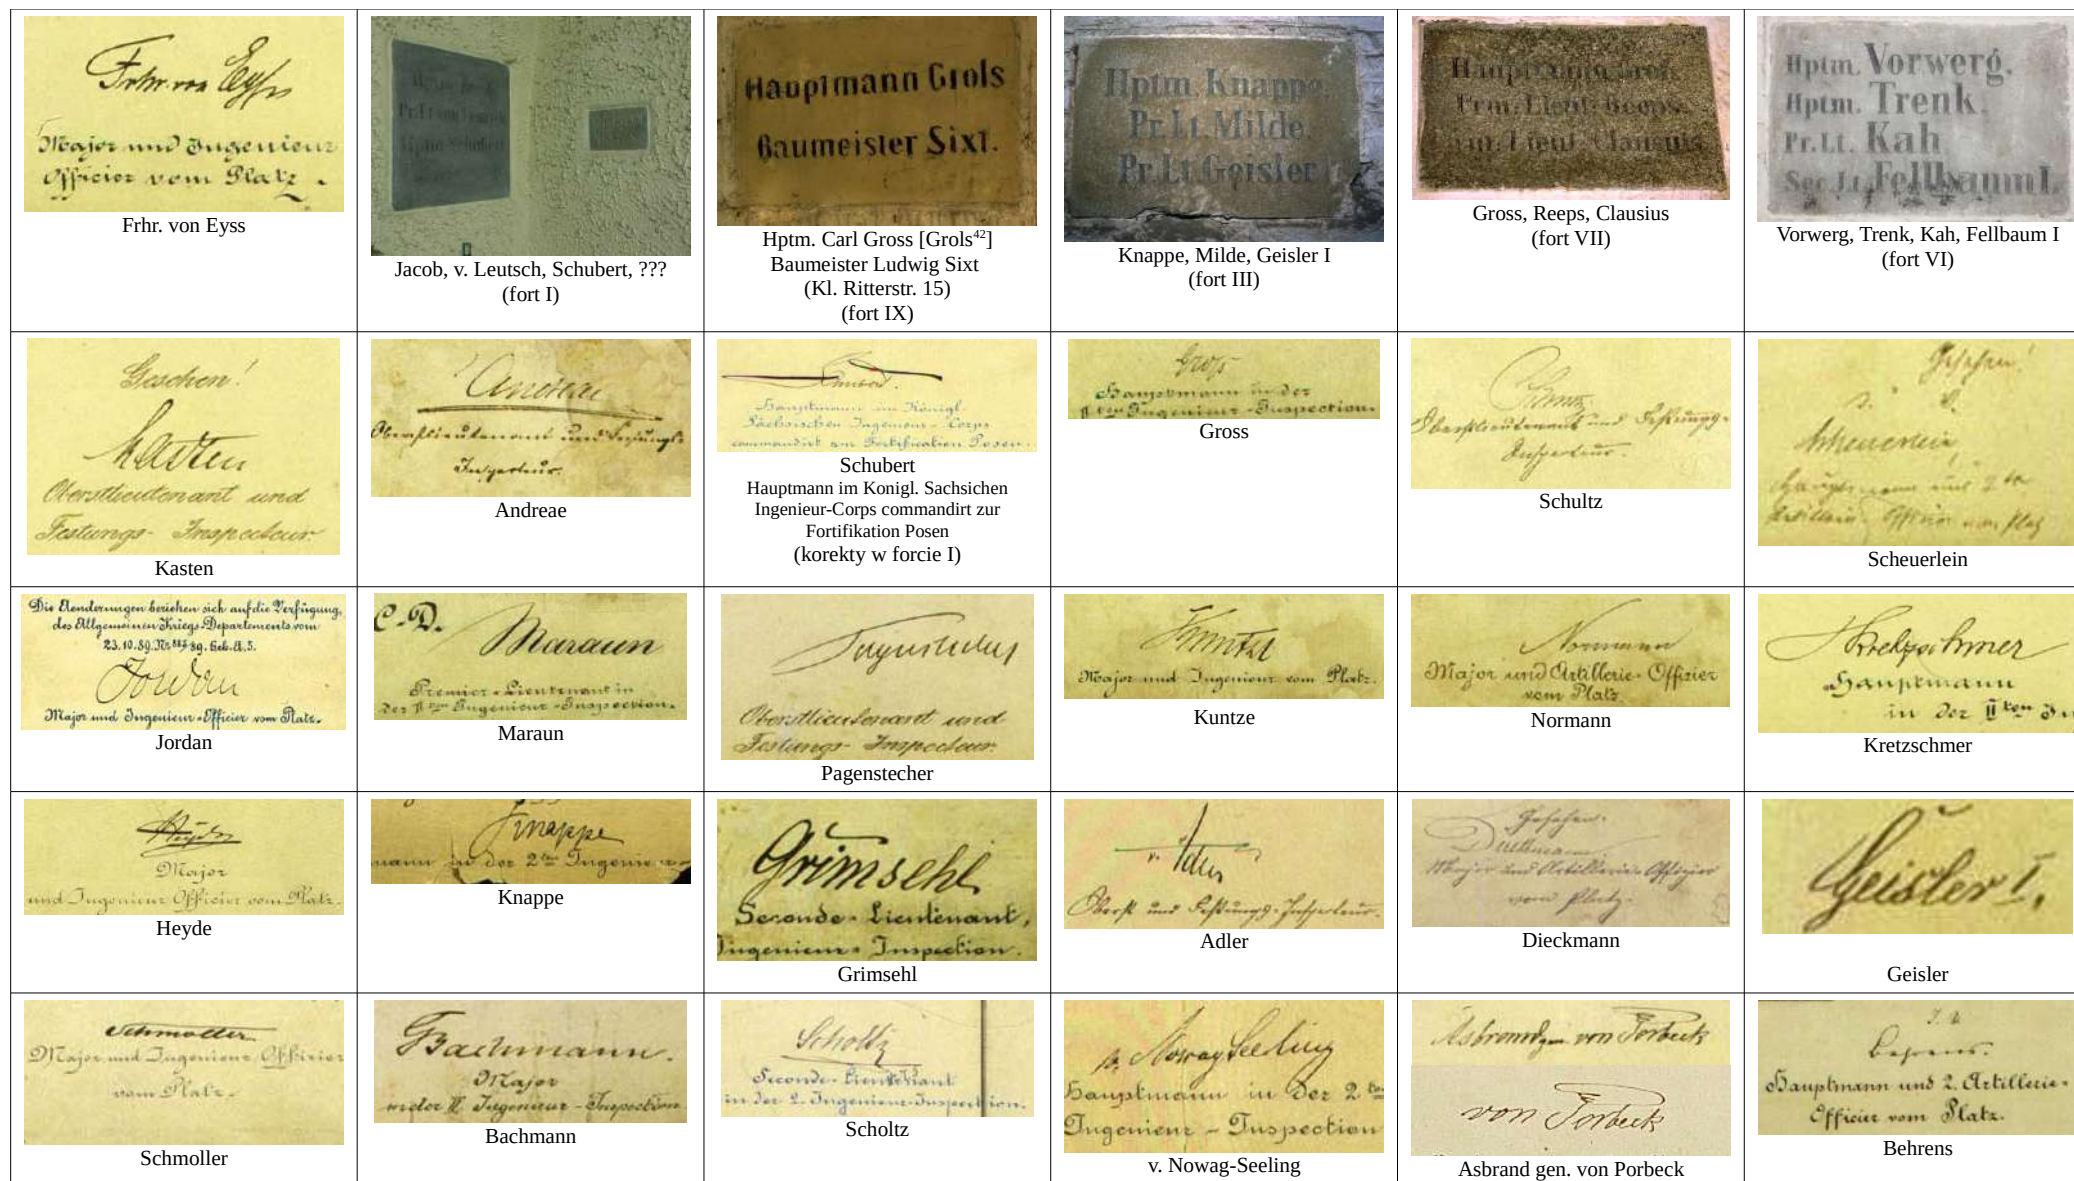 Frhr. von Eyss
Major und Ingenieur
Officier vom Platz.
Frhr. von Eyss
Jacob, v. Leutsch, Schubert, ???
(fort I)
Hauptmann Grols
Baumeister Sixt.
Hptm. Carl Gross [Grols42]
Baumeister Ludwig Sixt
(Kl. Ritterstr. 15)
(fort IX)
Hptm. Knappe.
Pr. Lt. Milde.
Pr. Lt. Geisler
Knappe, Milde, Geisler I
(fort III)
Hauptmann Gross
Prm. Lieut. Reeps.
Prm. Lieut. Clausius
Gross, Reeps, Clausius
(fort VII)
Hptm. Vorwerg.
Hptm. Trenk.
Pr. Lt. Kah.
Sec. Lt. Fellbaum I.
Vorwerg, Trenk, Kah, Fellbaum I
(fort VI)
Gesehen!
Kasten
Oberstlieutenant und
Festungs-Inspecteur.
Kasten
Andreae
Oberstlieutenant und Festungs-
Inspecteur.
Andreae
Hauptmann im Königl.
Sächsischen Ingenieur-Corps
commandirt zur Fortification Posen.
Schubert
Hauptmann im Konigl. Sachsichen
Ingenieur-Corps commandirt zur
Fortifikation Posen
(korekty w forcie I)
Gross
Hauptmann in der
II ten Ingenieur-Inspection.
Gross
Schultz
Oberstlieutenant und Festungs-
Inspecteur.
Schultz
Gesehen!
Scheuerlein,
Hauptmann und 2 ter
Artillerie-Offizier vom Platz
Scheuerlein
Die Aenderungen beziehen sich auf die Verfügung
des Allgemeinen Kriegs-Departements vom
23.10.89.
Jordan
Major und Ingenieur-Officier vom Platz.
Jordan
C.D.
Maraun
Premier-Lieutenant in
der II ten Ingenieur-Inspection.
Maraun
Pagenstecher
Oberstlieutenant und
Festungs-Inspecteur.
Pagenstecher
Kuntze
Major und Ingenieur vom Platz.
Kuntze
Normann
Major und Artillerie-Offizier
vom Platz.
Normann
Kretzschmer
Hauptmann
in der II ten
Kretzschmer
Heyde
Major
und Ingenieur Officier vom Platz.
Heyde
Knappe
mann in der 2 ten Ingenieur-
Knappe
Grimsehl
Seconde-Lieutenant,
Ingenieur-Inspection.
Grimsehl
v. Adler
Oberst und Festungs-Inspecteur.
Adler
Gesehen.
Dieckmann.
Major und Artillerie-Offizier
vom Platz.
Dieckmann
Geisler I.
Geisler
Schmoller
Major und Ingenieur Offizier
vom Platz.
Schmoller
Bachmann.
Major
in der II. Ingenieur-Inspection
Bachmann
Scholtz
Seconde-Lieutenant
in der 2. Ingenieur-Inspection.
Scholtz
v. Nowag Seeling
Hauptmann in der 2 ten
Ingenieur-Inspection
v. Nowag-Seeling
Asbrand gen von Porbeck
von Porbeck
Asbrand gen. von Porbeck
Behrens.
Hauptmann und 2. Artillerie-
Officier vom Platz.
Behrens